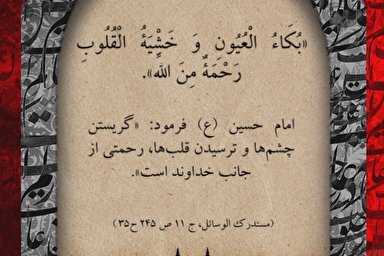 «بُكَاءُ الْعُيُونِ وَ خَشْيَةُ الْقُلُوبِ
رَحْمَةٌ مِنَ الله».
امام حسین (ع) فرمود: «گریستن
چشم‌ها و ترسیدن قلب‌ها، رحمتی از
جانب خداوند است».
(مستدرک الوسائل، ج ۱۱ ص ۲۴۵ ح۳۵)